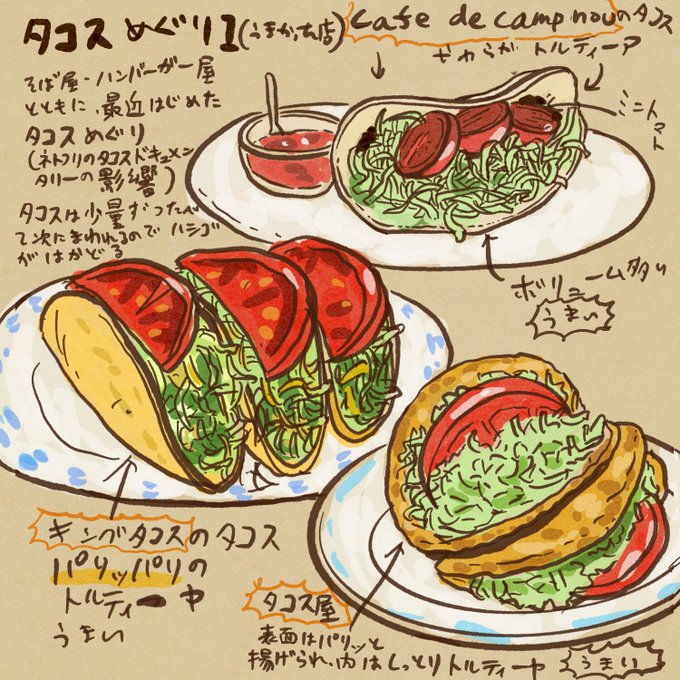 タコスめぐり1(うまかった店)
そば屋・ハンバーガー屋
とともに、最近はじめた
タコスめぐり
(ネトフリのタコスドキュメン
タリーの影響)
タコスは少量ずつたべ
て次にまわれるのでハシゴ
がはかどる
cafe de camp nouのタコス
やわらかトルティーア
ミニトマト
ボリューム多め
うまい
キングタコスのタコス
パリッパリの
トルティーヤ
うまい
タコス屋
表面はパリッと
揚げられ、内はしっとりトルティーヤ
うまい